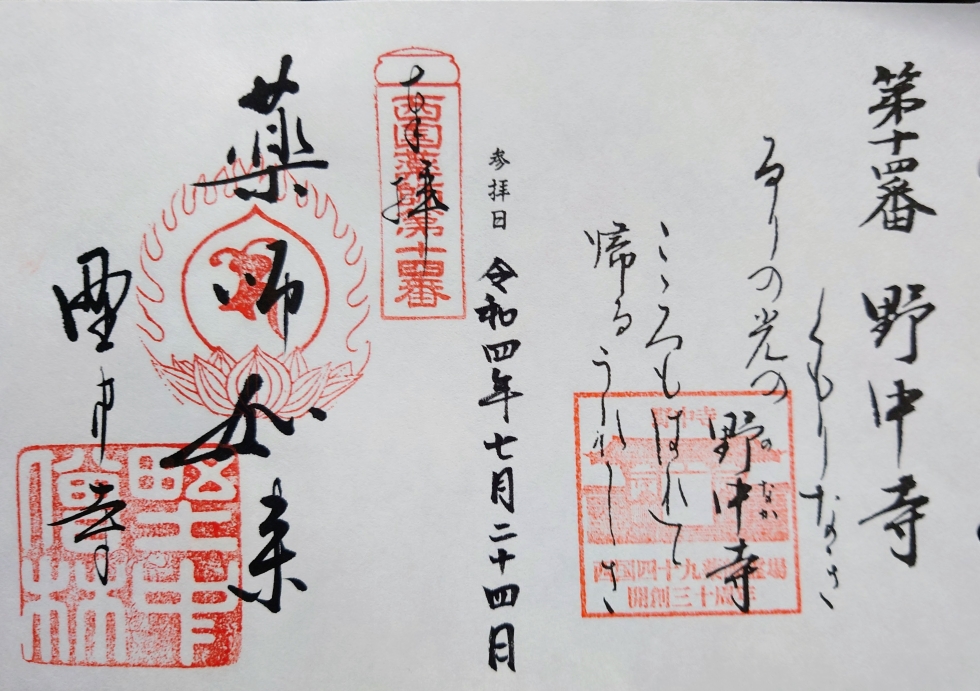 第十四番 野中寺
くもりなき
るりの光の 野中寺
のなか
こゝろもはれて
帰るうれしさ
野中寺
西国四十九薬師霊場
開創三十周年
参拝日 令和四年七月二十四日
奉拝
西国薬師第十四番
薬師如来
野中寺
野中寺
僧林